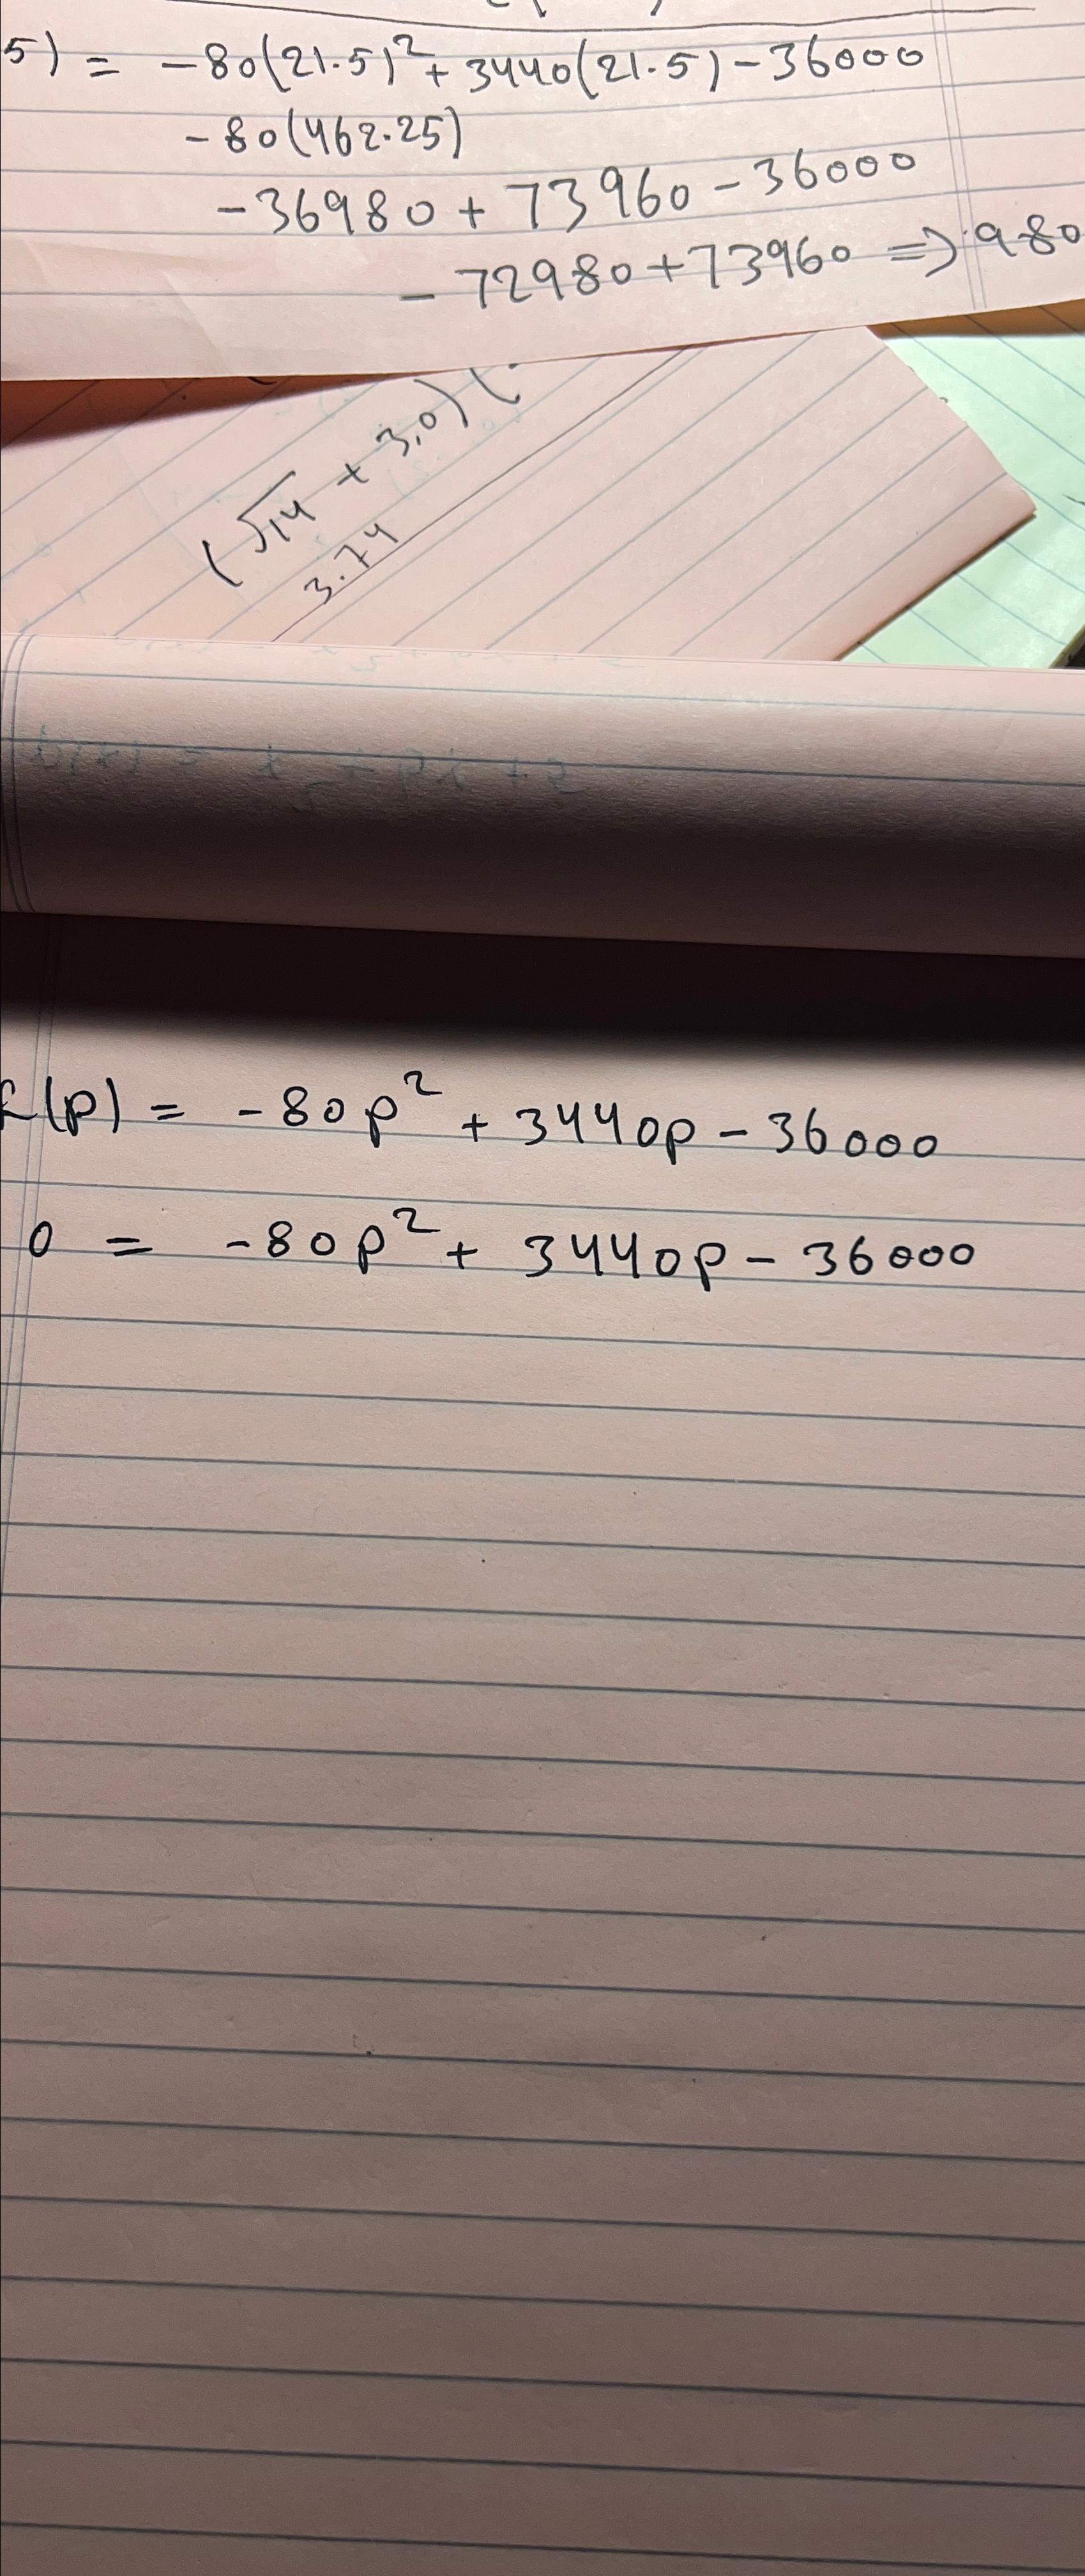 5) = -80(21.5)² + 3440(21.5) - 36000
-80(462.25)
-36980 + 73960 - 36000
-72980 + 73960 => 980
(√14 + 3.0) (
3.74
(p) = -80p² + 3440p - 36000
0 = -80p² + 3440p - 36000